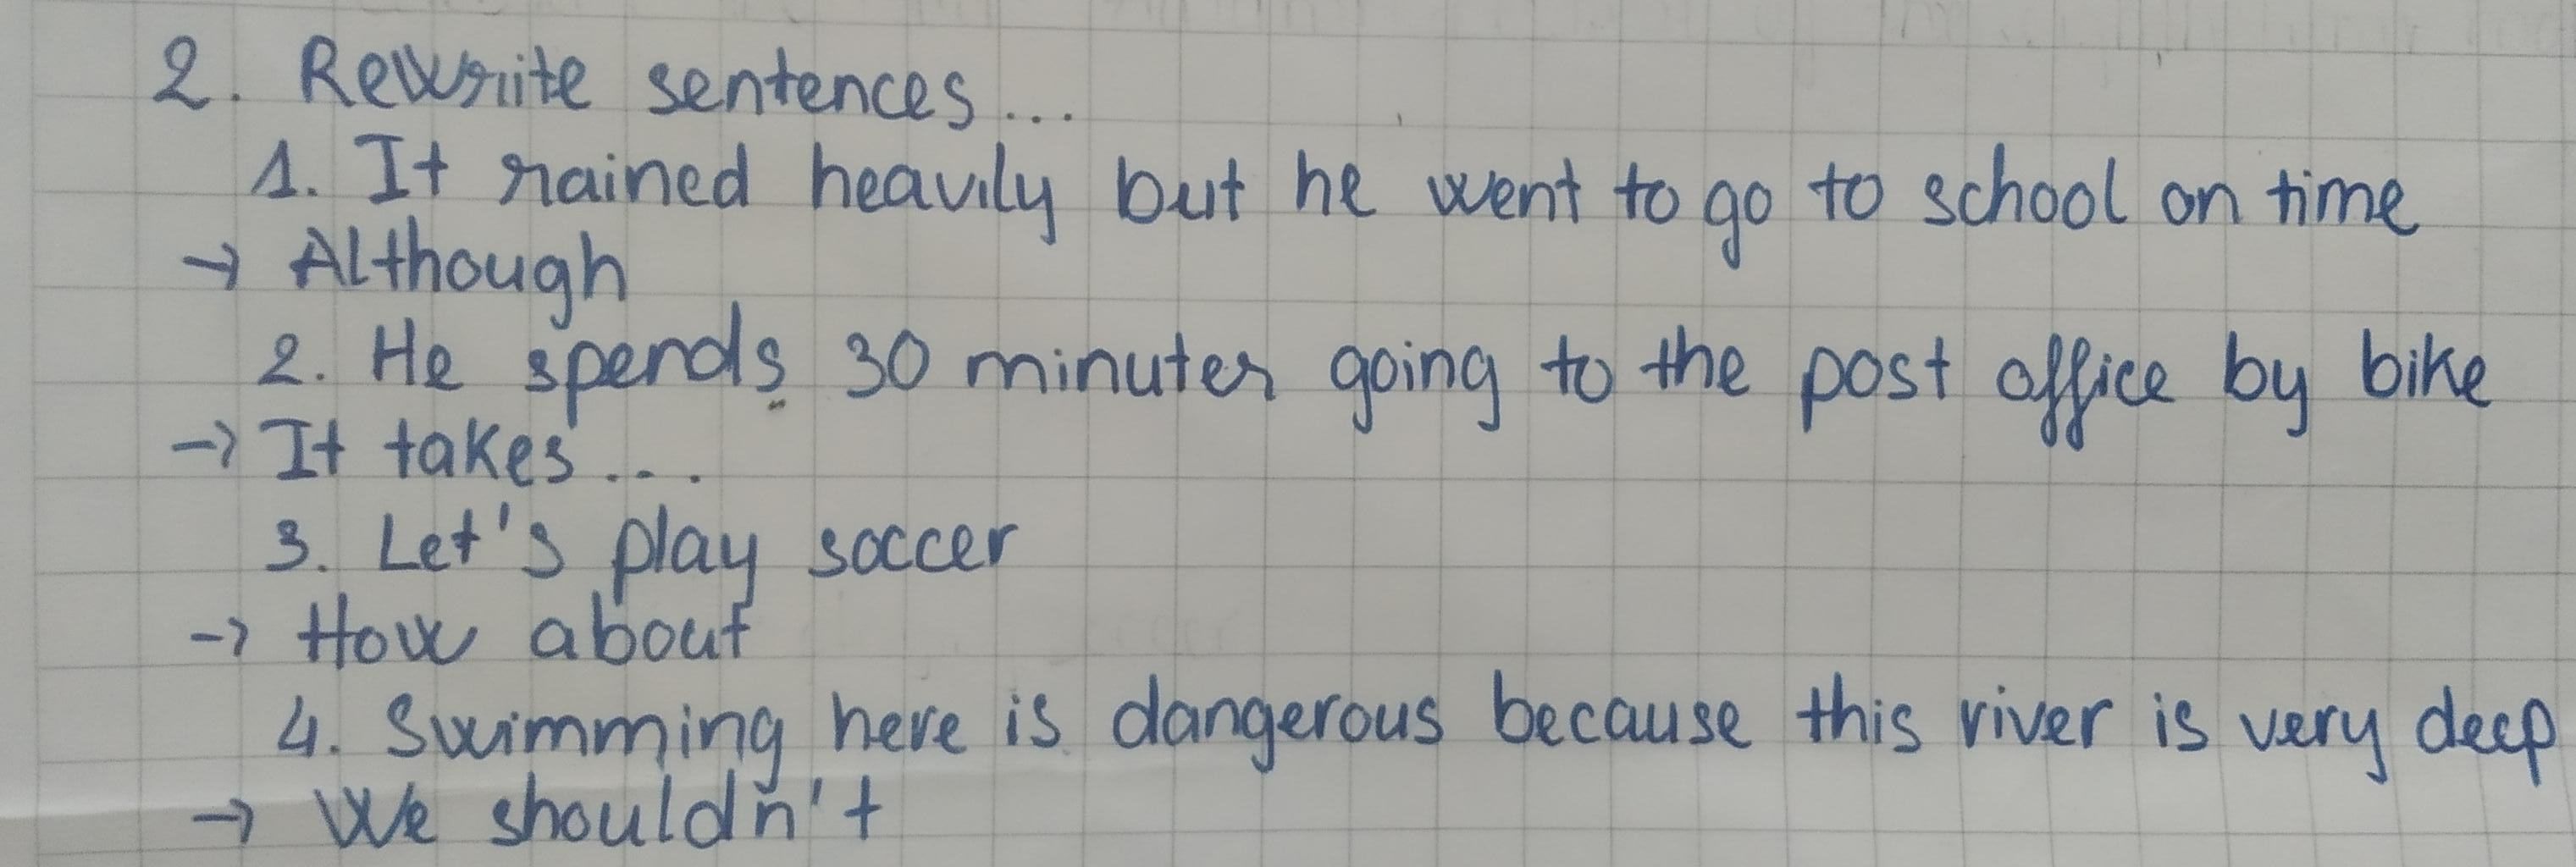 2. Rewrite sentences...
1. It rained heavily but he went to go to school on time
→ Although
2. He spends 30 minutes going to the post office by bike
→ It takes....
3. Let's play soccer
→ How about
4. Swimming here is dangerous because this river is very deep
→ We shouldn't